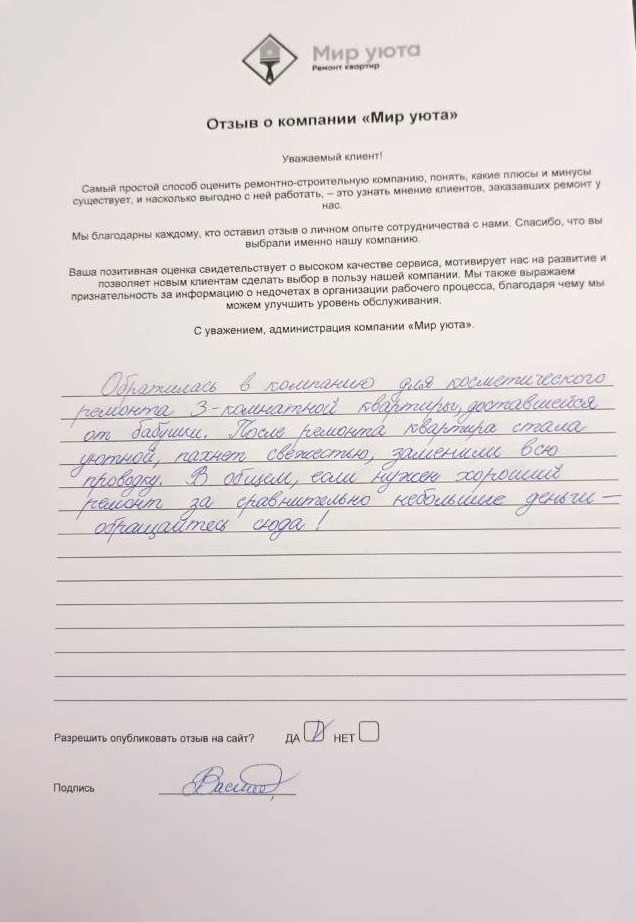 Мир уюта
Ремонт квартир
Отзыв о компании «Мир уюта»
Уважаемый клиент!
Самый простой способ оценить ремонтно-строительную компанию, понять, какие плюсы и минусы
существует, и насколько выгодно с ней работать, – это узнать мнение клиентов, заказавших ремонт у
нас.
Мы благодарны каждому, кто оставил отзыв о личном опыте сотрудничества с нами. Спасибо, что вы
выбрали именно нашу компанию.
Ваша позитивная оценка свидетельствует о высоком качестве сервиса, мотивирует нас на развитие и
позволяет новым клиентам сделать выбор в пользу нашей компании. Мы также выражаем
признательность за информацию о недочетах в организации рабочего процесса, благодаря чему мы
можем улучшить уровень обслуживания.
С уважением, администрация компании «Мир уюта».
Обратилась в компанию для косметического
ремонта 3-комнатной квартиры, доставшейся
от бабушки. После ремонта квартира стала
уютной, пахнет свежестью, заменили всю
проводку. В общем, если нужен хороший
ремонт за сравнительно небольшие деньги –
обращайтесь сюда!
Разрешить опубликовать отзыв на сайт? ДА НЕТ
Подпись